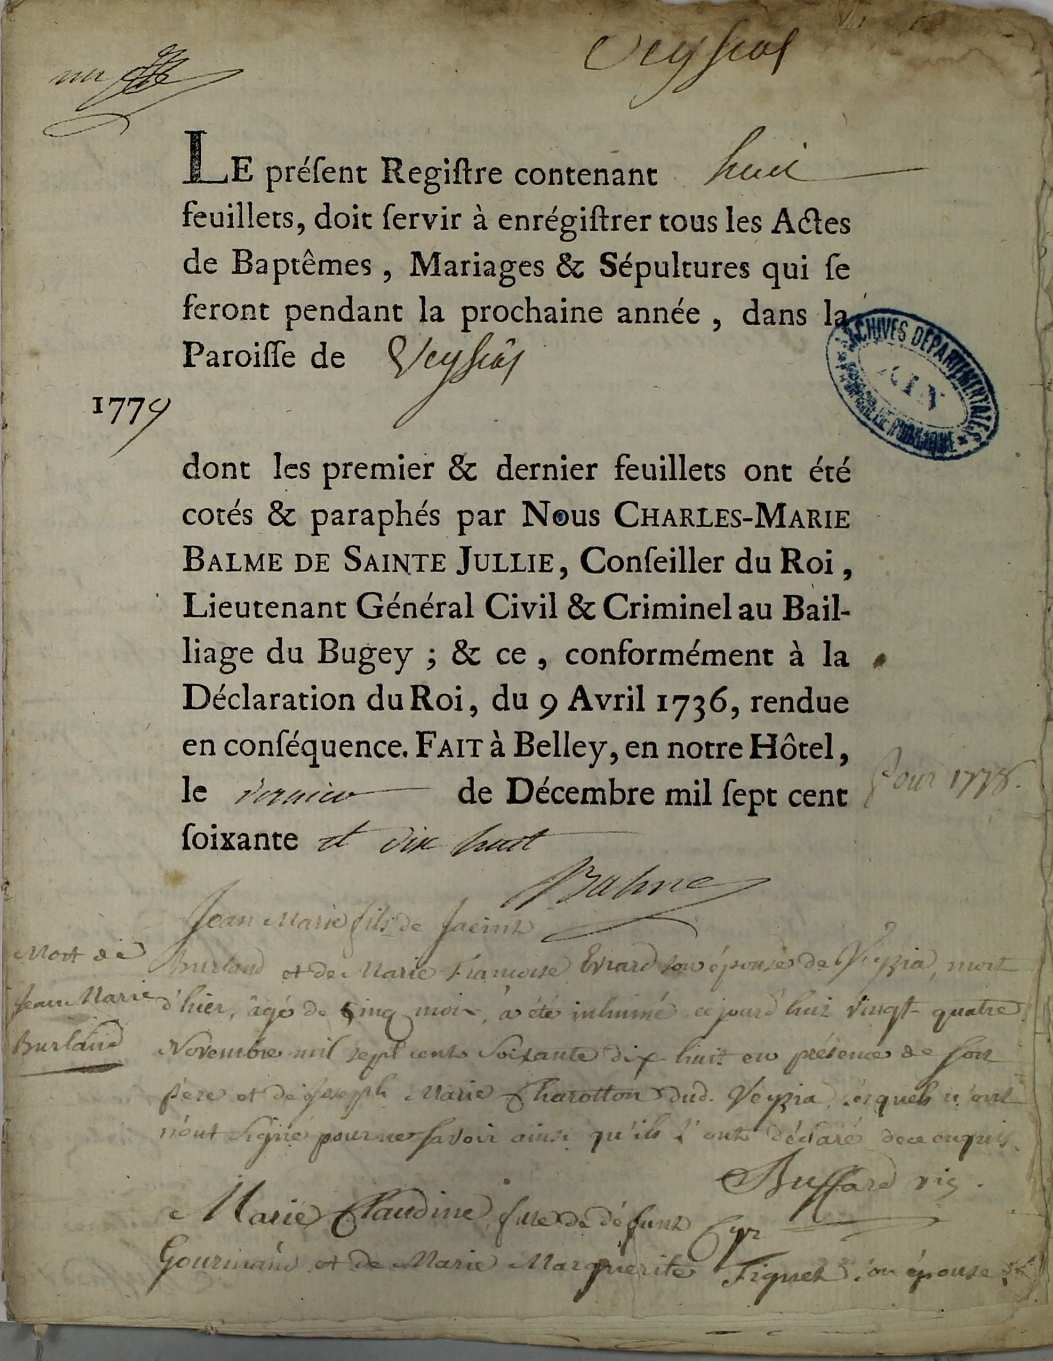 Veyssias
un
LE préſent Regiſtre contenant huit
feuillets, doit ſervir à enrégiſtrer tous les Actes
de Baptêmes, Mariages & Sépultures qui ſe
feront pendant la prochaine année, dans la
Paroiſſe de
1779
ARCHIVES DÉPARTEMENTALES
AIN
dont les premier & dernier feuillets ont été
cotés & paraphés par Nous CHARLES-MARIE
BALME DE SAINTE JULLIE, Conſeiller du Roi,
Lieutenant Général Civil & Criminel au Bail-
liage du Bugey ; & ce, conformément à la
Déclaration du Roi, du 9 Avril 1736, rendue
en conſéquence. FAIT à Belley, en notre Hôtel,
le dernier de Décembre mil ſept cent
ſoixante et dix huit
pour 1778.
Balme
Jean Marie fils de Jacint
Mort de
Jean Marie
Burland
Burland et de Marie Françoise Evrard son épouse de Veyzia, mort
d'hier, âgé de cinq mois, a été inhumé cejourd'hui vingt quatre
Novembre mil sept cents soixante dix huit en présence de son
père et de Joseph Marie Charotton dud. Veyzia, lesquels n'ont
n'ont signé pour ne savoir ainsi qu'ils l'ont déclaré de ce enquis.
Buffard vic.
Marie Claudine, fille de défunt Cyr
Gourmand et de Marie Marguerite Figuet son épouse